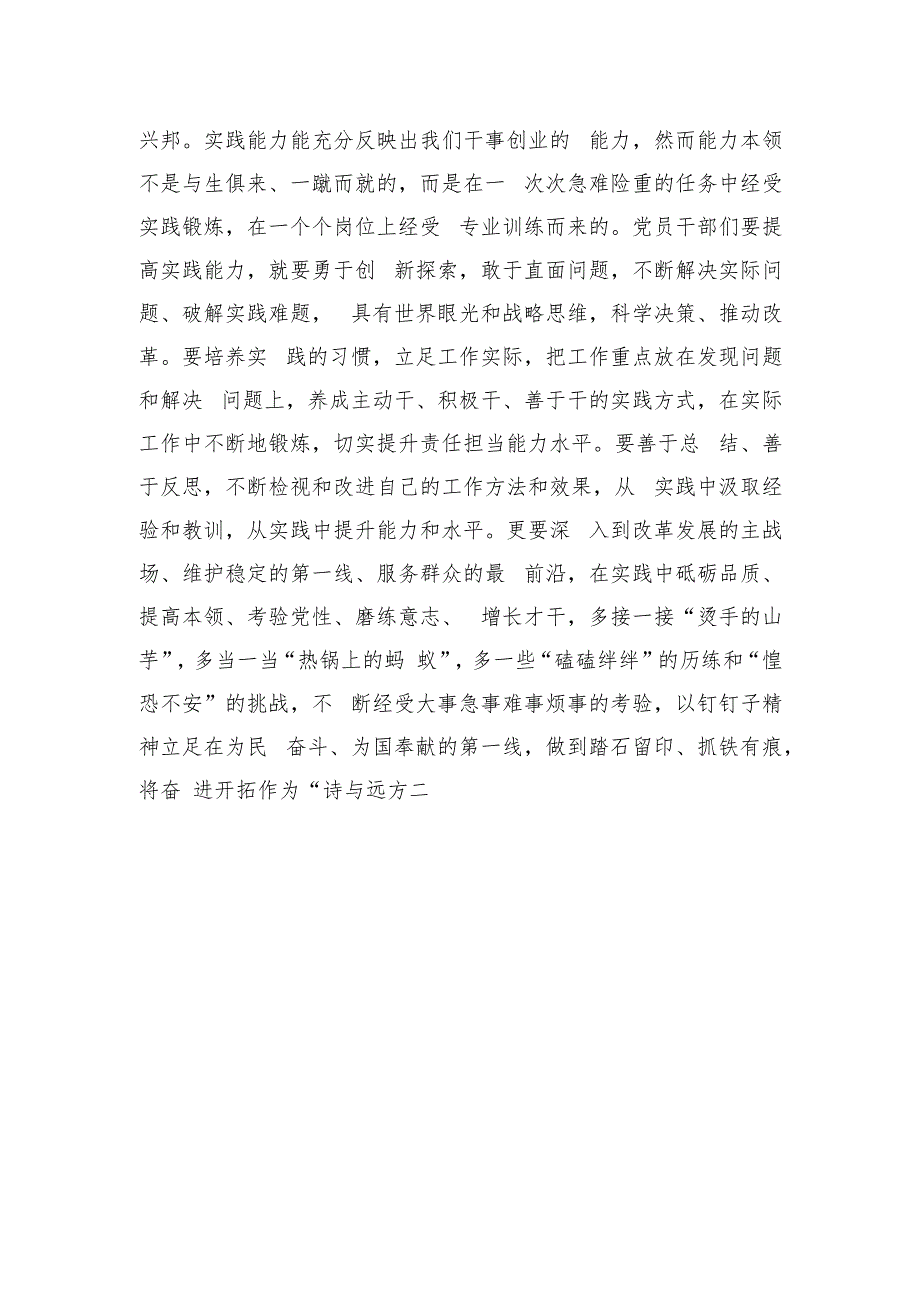 兴邦。实践能力能充分反映出我们干事创业的 能力，然而能力本领
不是与生俱来、一蹴而就的，而是在一 次次急难险重的任务中经受
实践锻炼，在一个个岗位上经受 专业训练而来的。党员干部们要提
高实践能力，就要勇于创 新探索，敢于直面问题，不断解决实际问
题、破解实践难题， 具有世界眼光和战略思维，科学决策、推动改
革。要培养实 践的习惯，立足工作实际，把工作重点放在发现问题
和解决 问题上，养成主动干、积极干、善于干的实践方式，在实际
工作中不断地锻炼，切实提升责任担当能力水平。要善于总 结、善
于反思，不断检视和改进自己的工作方法和效果，从 实践中汲取经
验和教训，从实践中提升能力和水平。更要深 入到改革发展的主战
场、维护稳定的第一线、服务群众的最 前沿，在实践中砥砺品质、
提高本领、考验党性、磨练意志、 增长才干，多接一接“烫手的山
芋”，多当一当“热锅上的蚂 蚁”，多一些“磕磕绊绊”的历练和“惶
恐不安”的挑战，不 断经受大事急事难事烦事的考验，以钉钉子精
神立足在为民 奋斗、为国奉献的第一线，做到踏石留印、抓铁有痕，
将奋 进开拓作为“诗与远方二